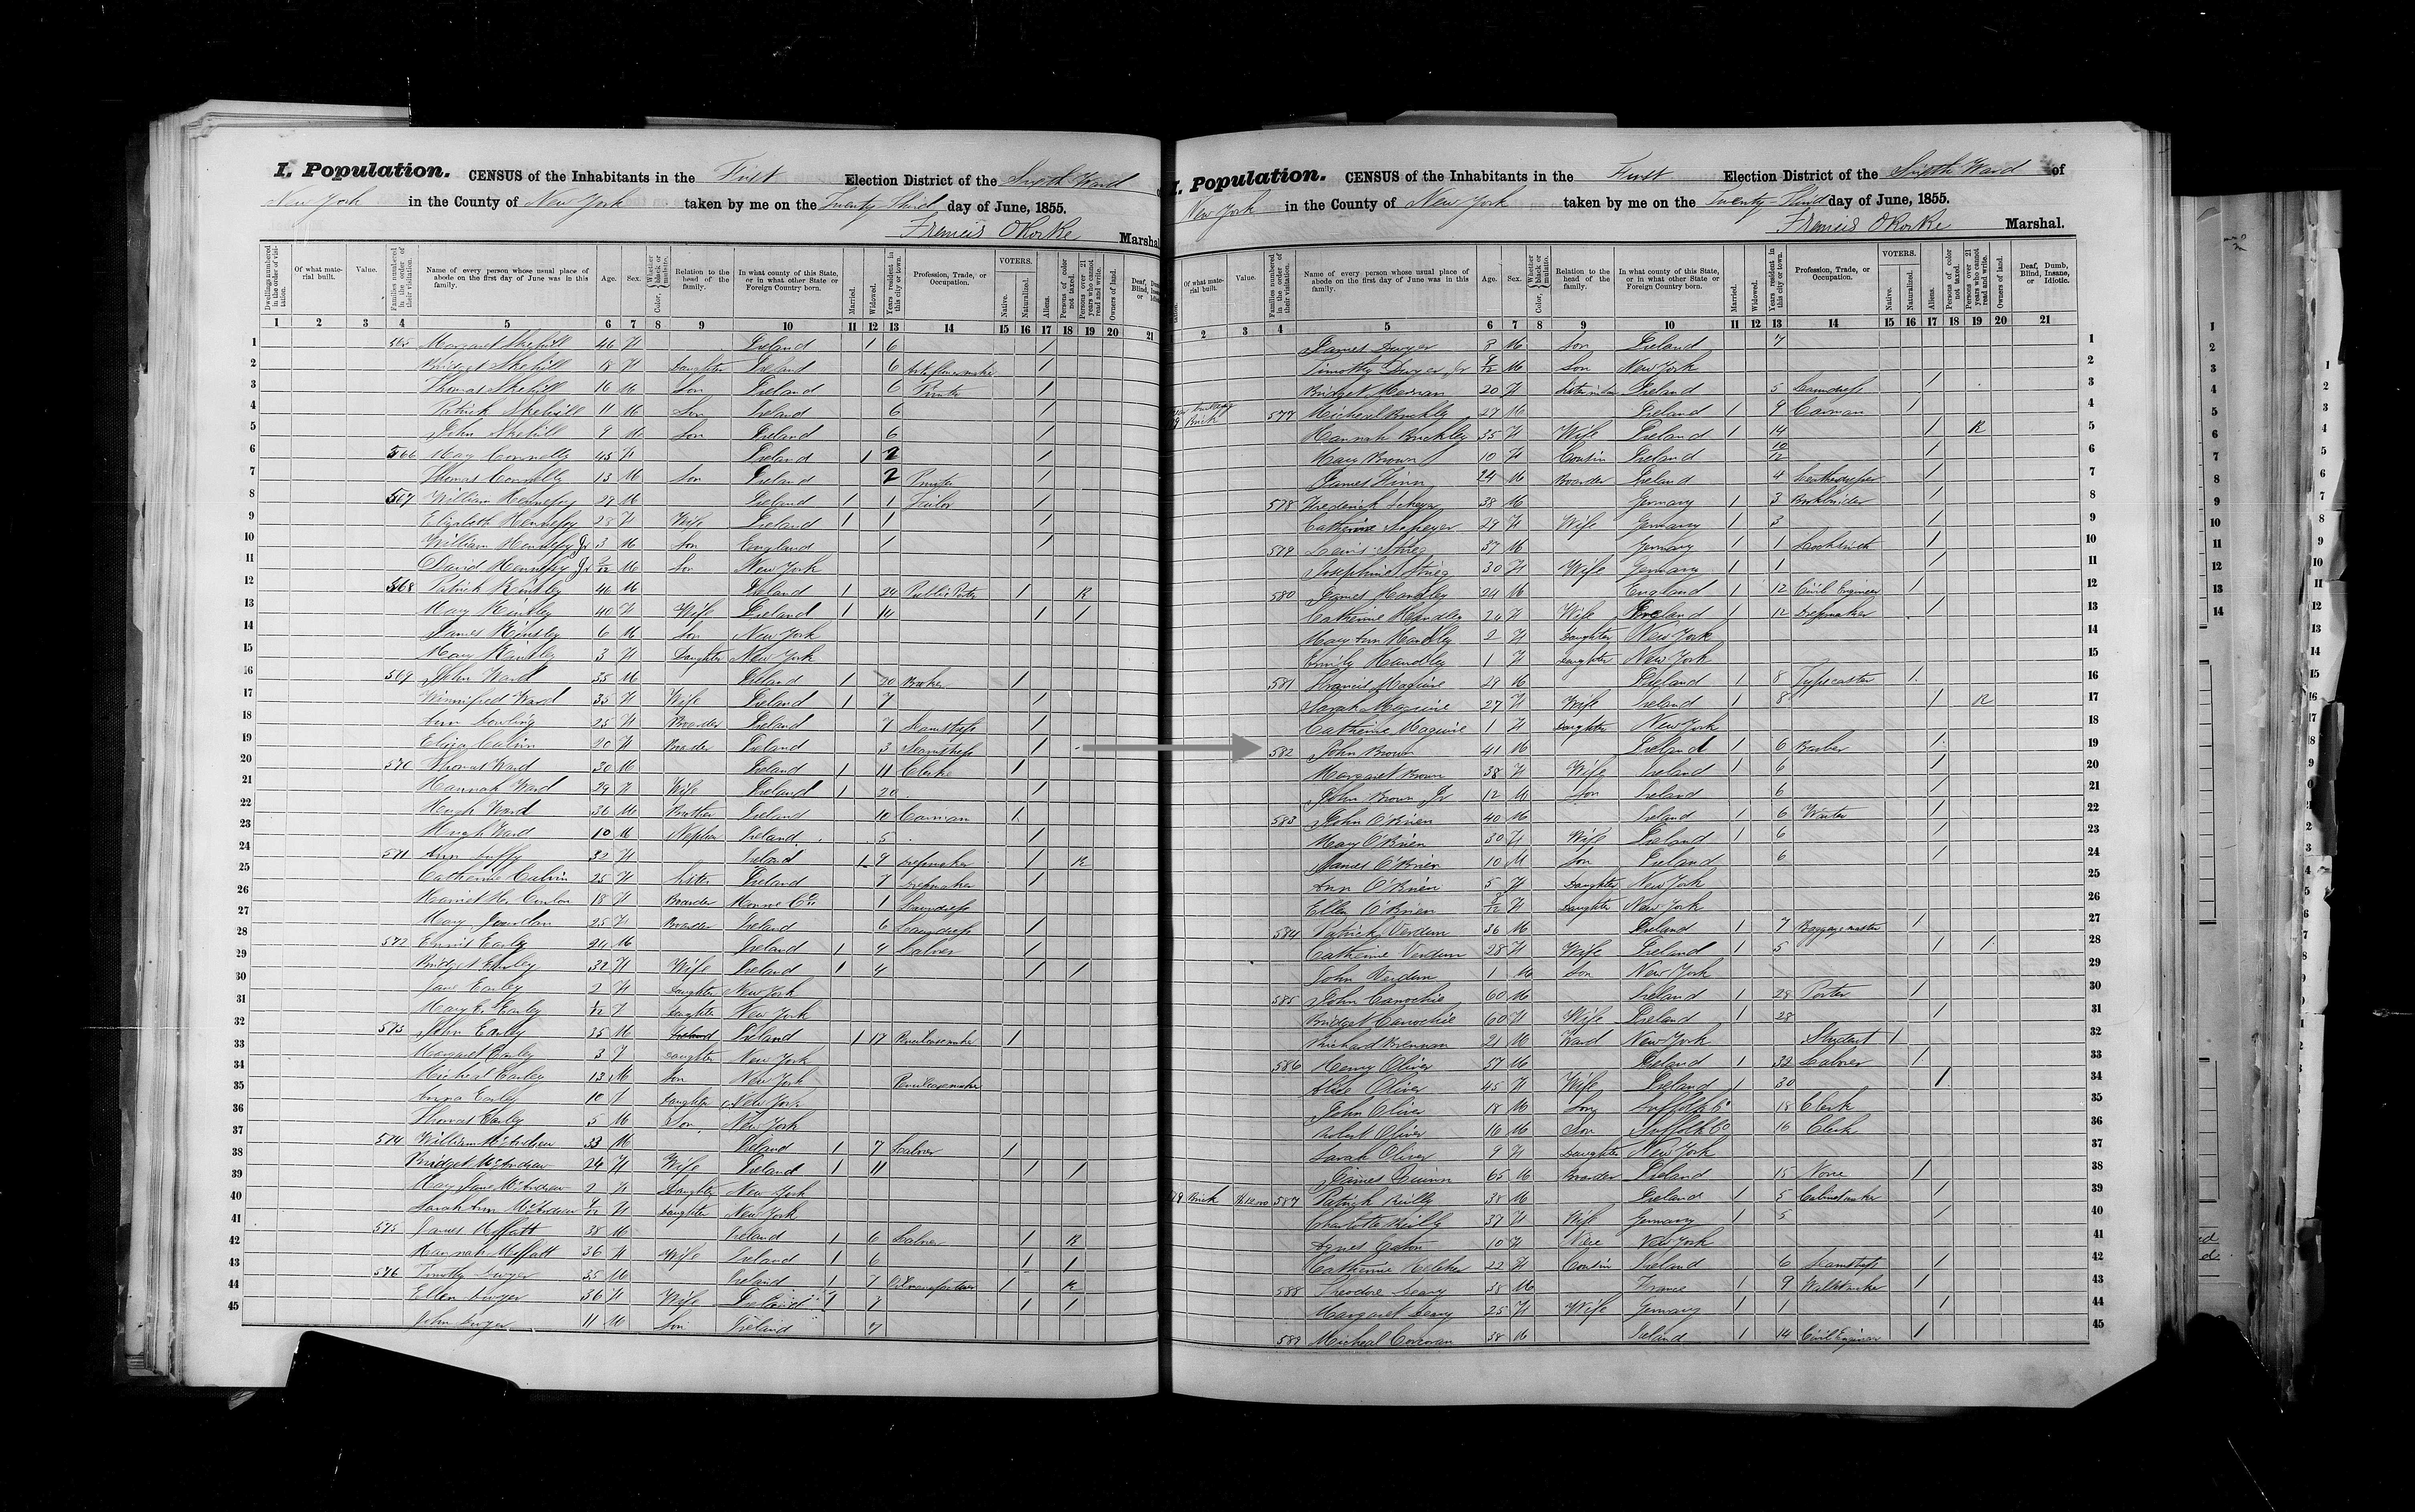 I. Population. CENSUS of the Inhabitants in the First Election District of the Ward
New York in the County of New York taken by me on the Twenty Third day of June, 1855.
Francis O'Rorke Marshal
Dwellings numbered in the order of visitation. Of what material built. Value. Families numbered in the order of their visitation. Name of every person whose usual place of abode on the first day of June was in this family. Age. Sex. Color, Whether black or mulatto. Relation to the head of the family. In what county of this State, or in what other State or Foreign Country born. Married. Widowed. Years resident in this city or town. Profession, Trade, or Occupation. VOTERS. Native. Naturalized. Aliens. Persons of color not taxed. Persons over 21 years who cannot read and write. Owners of land. Deaf, Dumb, Blind, Insane, or Idiotic.
1 2 3 4 5 6 7 8 9 10 11 12 13 14 15 16 17 18 19 20 21
1 565 Margaret Skehill 46 F Ireland 1 6 1
2 Bridget Skehill 18 F Daughter Ireland 6 1
3 Thomas Skehill 16 M Son Ireland 6 Printer 1
4 Patrick Skehill 11 M Son Ireland 6 1
5 John Skehill 9 M Son Ireland 6 1
6 566 Mary Connolly 45 F Ireland 1 2 1
7 Thomas Connolly 13 M Son Ireland 2 Printer 1
8 567 William Hennessy 29 M Ireland 1 1 Tailor 1
9 Elizabeth Hennessy 28 F Wife Ireland 1 1 1
10 William Hennessy Jr 3 M Son England 1 1
11 David Hennessy Jr M Son New York
12 568 Patrick Kinsley 46 M Ireland 1 24 Public Porter 1 R
13 Mary Kinsley 40 F Wife Ireland 1 14 1 1
14 James Kinsley 6 M Son New York
15 Mary Kinsley 3 F Daughter New York
16 569 John Ward 35 M Ireland 1 20 1
17 Winnifred Ward 35 F Wife Ireland 1 7 1
18 Ann 25 F Boarder Ireland 7 Seamstress 1
19 Eliza Calvin 20 F Boarder Ireland 3 Seamstress 1
20 570 Thomas Ward 30 M Ireland 1 11 Clerk 1
21 Hannah Ward 29 F Wife Ireland 1 20 1
22 Hugh Ward 36 M Brother Ireland 10 Carman 1
23 Hugh Ward 10 M Nephew Ireland 5 1
24 571 Ann Duffy 32 F Ireland 1 9 Dressmaker 1 R
25 Catherine Calvin 25 F Sister Ireland 7 Dressmaker 1
26 Harriet 18 F Boarder Monroe Co. 1 Laundress
27 Mary Jourdan 25 F Boarder Ireland 6 Laundress 1
28 572 Earley M Ireland 1 4 Laborer 1
29 Bridget Earley 32 F Wife Ireland 1 4 1 1
30 Jane Earley 2 F Daughter New York
31 Mary E. Earley F Daughter New York
32 573 John Earley 35 M Ireland 1 17 1
33 Margaret Earley 3 F Daughter New York
34 Micheal Earley 13 M Son New York
35 Anna Earley 10 F Daughter New York
36 Thomas Earley 5 M Son New York
37 574 William McAndrew 33 M Ireland 1 7 Laborer 1
38 Bridget McAndrew 24 F Wife Ireland 1 11 1 1
39 Mary Jane McAndrew 2 F Daughter New York
40 Sarah Ann McAndrew F Daughter New York
41 575 James Moffatt 38 M Ireland 1 6 Laborer 1 R
42 Hannah Moffatt 36 F Wife Ireland 1 6 1 1
43 576 Timothy Dwyer 35 M Ireland 1 7 1 R
44 Ellen Dwyer 36 F Wife Ireland 1 7 1 1
45 John Dwyer 11 M Son Ireland 7
I. Population. CENSUS of the Inhabitants in the First Election District of the Ward of
New York in the County of New York taken by me on the Twenty-Third day of June, 1855.
Francis O'Rorke Marshal.
Of what material built. Value. Families numbered in the order of their visitation. Name of every person whose usual place of abode on the first day of June was in this family. Age. Sex. Color, Whether black or mulatto. Relation to the head of the family. In what county of this State, or in what other State or Foreign Country born. Married. Widowed. Years resident in this city or town. Profession, Trade, or Occupation. VOTERS. Native. Naturalized. Aliens. Persons of color not taxed. Persons over 21 years who cannot read and write. Owners of land. Deaf, Dumb, Blind, Insane, or Idiotic.
2 3 4 5 6 7 8 9 10 11 12 13 14 15 16 17 18 19 20 21
James Dwyer 8 M Son Ireland 7 1
Timothy Dwyer Jr M Son New York 2
Bridget 20 F Ireland 5 Laundress 1 3
Brick 577 Micheal Buckley 27 M Ireland 1 9 Carman 1 4
Hannah Buckley 35 F Wife Ireland 1 14 1 R 5
Mary Brown 10 F Cousin Ireland 10/12 1 6
James Finn 24 M Boarder Ireland 4 1 7
578 Frederick 38 M Germany 1 3 Bookbinder 1 8
Catherine 29 F Wife Germany 1 3 1 9
579 Louis 37 M Germany 1 1 Locksmith 1 10
Josephine 30 F Wife Germany 1 1 1 11
580 James Handley 24 M England 1 12 Civil Engineer 1 12
Catherine Handley 24 F Wife Ireland 1 12 Dressmaker 1 13
Mary Ann Handley 2 F Daughter New York 14
Emily Handley 1 F Daughter New York 15
581 Francis Maguire 29 M Ireland 1 8 Typecaster 1 16
Sarah Maguire 27 F Wife Ireland 1 8 1 R 17
Catherine Maguire 1 F Daughter New York 18
582 John Brown 41 M Ireland 1 6 Barber 1 19
Margaret Brown 38 F Wife Ireland 1 6 1 20
John Brown Jr 12 M Son Ireland 6 1 21
583 John O'Brien 40 M Ireland 1 6 Waiter 1 22
Mary O'Brien 30 F Wife Ireland 1 6 1 23
James O'Brien 10 M Son Ireland 6 1 24
Ann O'Brien 5 F Daughter New York 25
Ellen O'Brien F Daughter New York 26
584 Patrick Verdun 36 M Ireland 1 7 Baggage master 1 27
Catherine Verdun 28 F Wife Ireland 1 5 1 1 28
John Verdun 1 M Son New York 29
585 John Canochie 60 M Ireland 1 29 Porter 1 30
Bridget Canochie 60 F Wife Ireland 1 28 1 31
Richard Brennan 21 M Ward New York Student 1 32
586 Henry Oliver 57 M Ireland 1 32 Laborer 1 33
Alice Oliver 45 F Wife Ireland 1 30 1 34
John Oliver 18 M Son Suffolk Co 18 Clerk 35
Robert Oliver 16 M Son Suffolk Co 16 Clerk 36
Sarah Oliver 9 F Daughter New York 37
James Quinn 65 M Boarder Ireland 15 None 1 38
Brick 587 Patrick Reilly 38 M Ireland 1 5 Cabinetmaker 1 39
Charlotte Reilly 37 F Wife Germany 1 5 1 40
Agnes Eaton 10 F Niece New York 41
Catherine Kelcher 22 F Cousin Ireland 6 Seamstress 1 42
588 Theodore Seary 38 M France 1 9 1 43
Margaret Seary 25 F Wife Germany 1 1 1 44
589 Micheal Corcoran 38 M Ireland 1 14 Civil Engineer 1 45